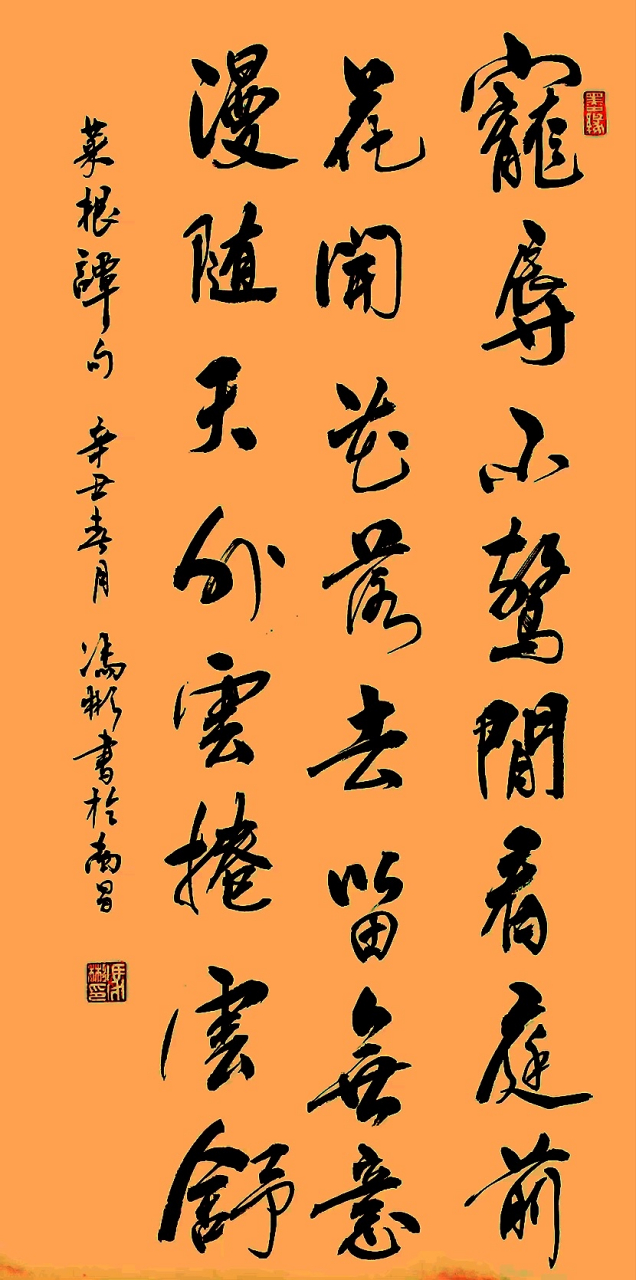 墨緣
寵辱不驚閒看庭前
花開花落去留無意
漫随天外雲捲雲舒
菜根譚句 辛丑春月 馮彬書於南昌